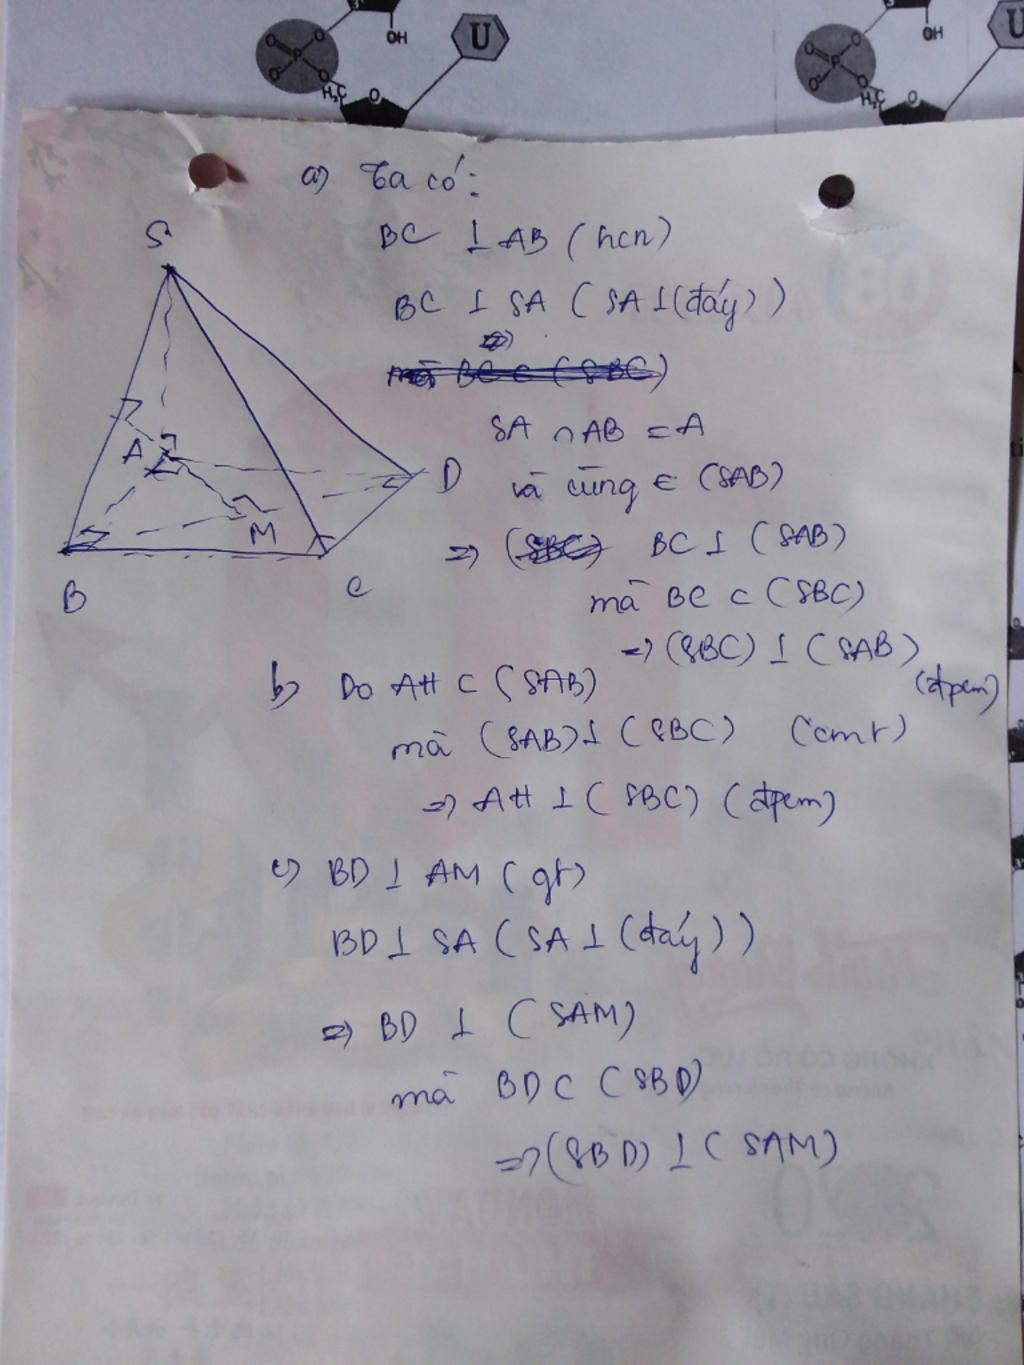 OH
U
OH
H₃C
O
P
O
O⁻
H₃C
O
P
a) Ta có:
BC ⊥ AB (hcn)
BC ⊥ SA (SA ⊥ (đáy))
SA ∩ AB = A
và cũng ∈ (SAB)
=> BC ⊥ (SAB)
mà BC ⊂ (SBC)
=> (SBC) ⊥ (SAB)
(đpcm)
S
A
D
M
B
C
b) Do AH ⊂ (SAB)
mà (SAB) ⊥ (SBC) (cmt)
=> AH ⊥ (SBC) (đpcm)
c) BD ⊥ AM (gt)
BD ⊥ SA (SA ⊥ (đáy))
=> BD ⊥ (SAM)
mà BD ⊂ (SBD)
=> (SBD) ⊥ (SAM)